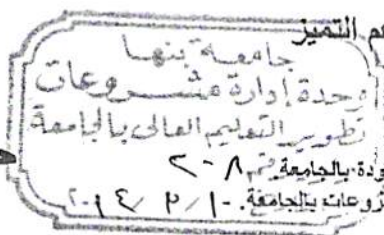 م التميز
جامعة بنها
وحدة إدارة مشروعات
تطوير التعليم العالى بالجامعة
ودة بالجامعة
روعات بالجامعة